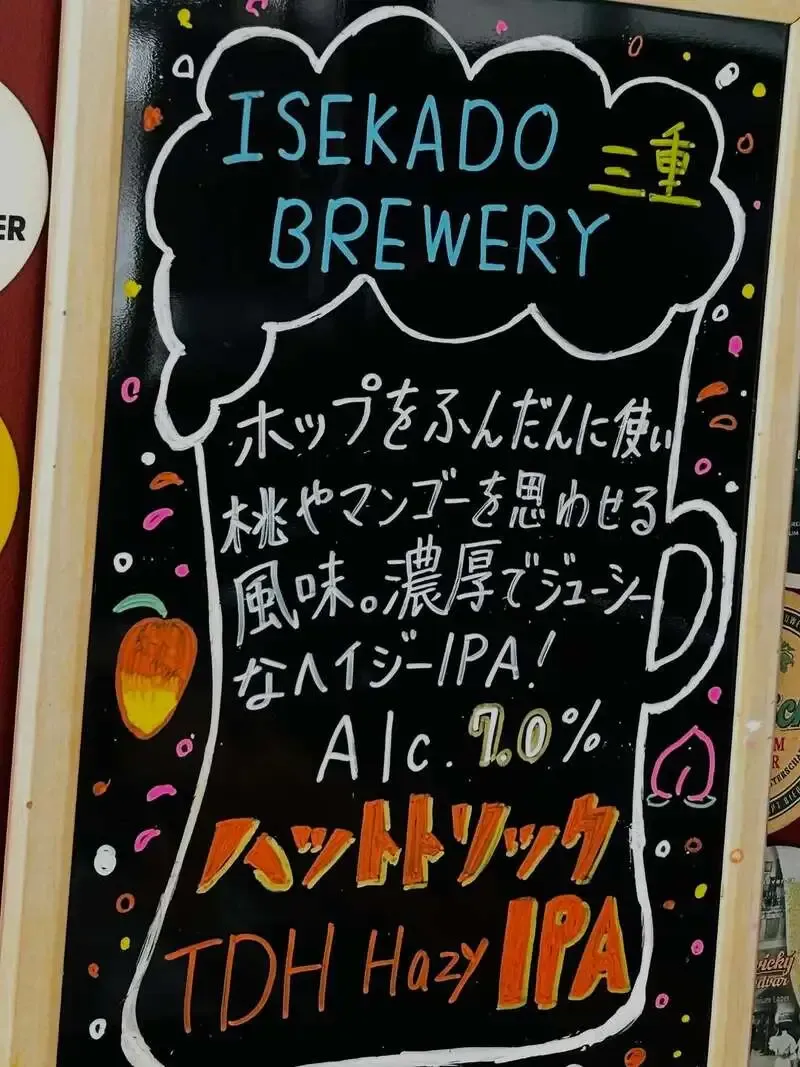 ISEKADO
三重
BREWERY
ホップをふんだんに使い
桃やマンゴーを思わせる
風味。濃厚でジューシー
なヘイジーIPA!
Alc. 7.0%
ハットトリック
TDH Hazy IPA
ER